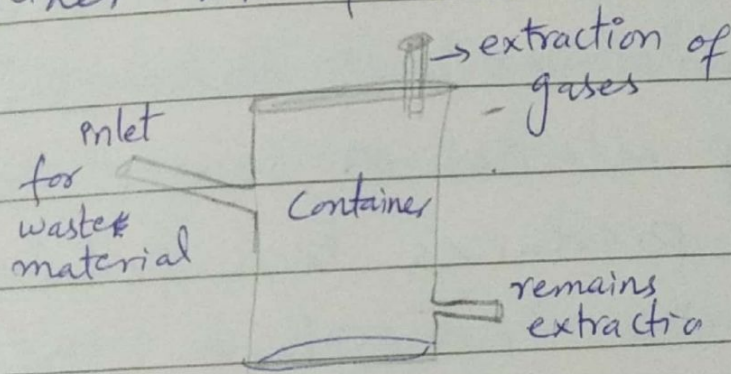 extraction of
gases
inlet
for
waste
material
Container
remains
extractio